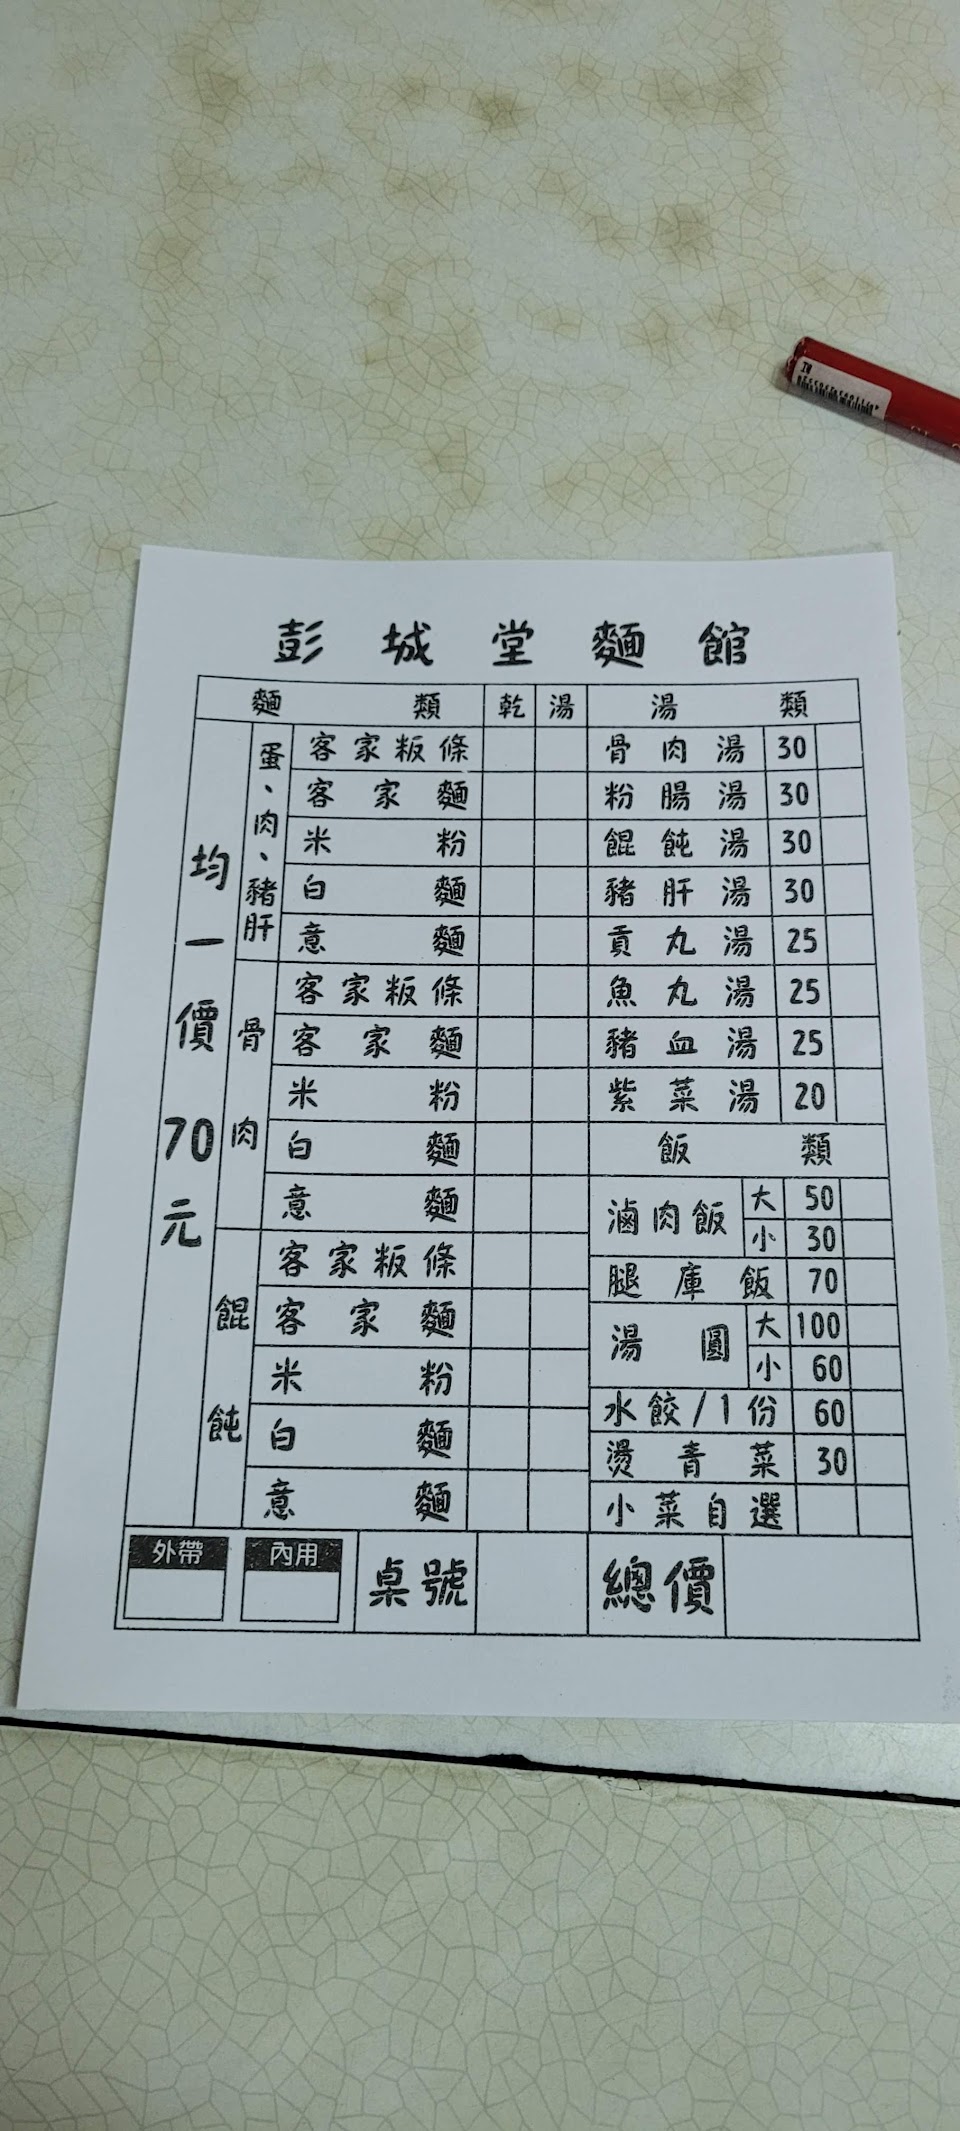 彭城堂麵館
麵類 乾 湯 湯類
均一價70元
蛋、肉、豬肝
客家粄條
客家麵
米粉
白麵
意麵
骨肉
客家粄條
客家麵
米粉
白麵
意麵
餛飩
客家粄條
客家麵
米粉
白麵
意麵
骨肉湯 30
粉腸湯 30
餛飩湯 30
豬肝湯 30
貢丸湯 25
魚丸湯 25
豬血湯 25
紫菜湯 20
飯類
滷肉飯 大 50
小 30
腿庫飯 70
湯圓 大 100
小 60
水餃/1份 60
燙青菜 30
小菜自選
外帶 內用 桌號 總價